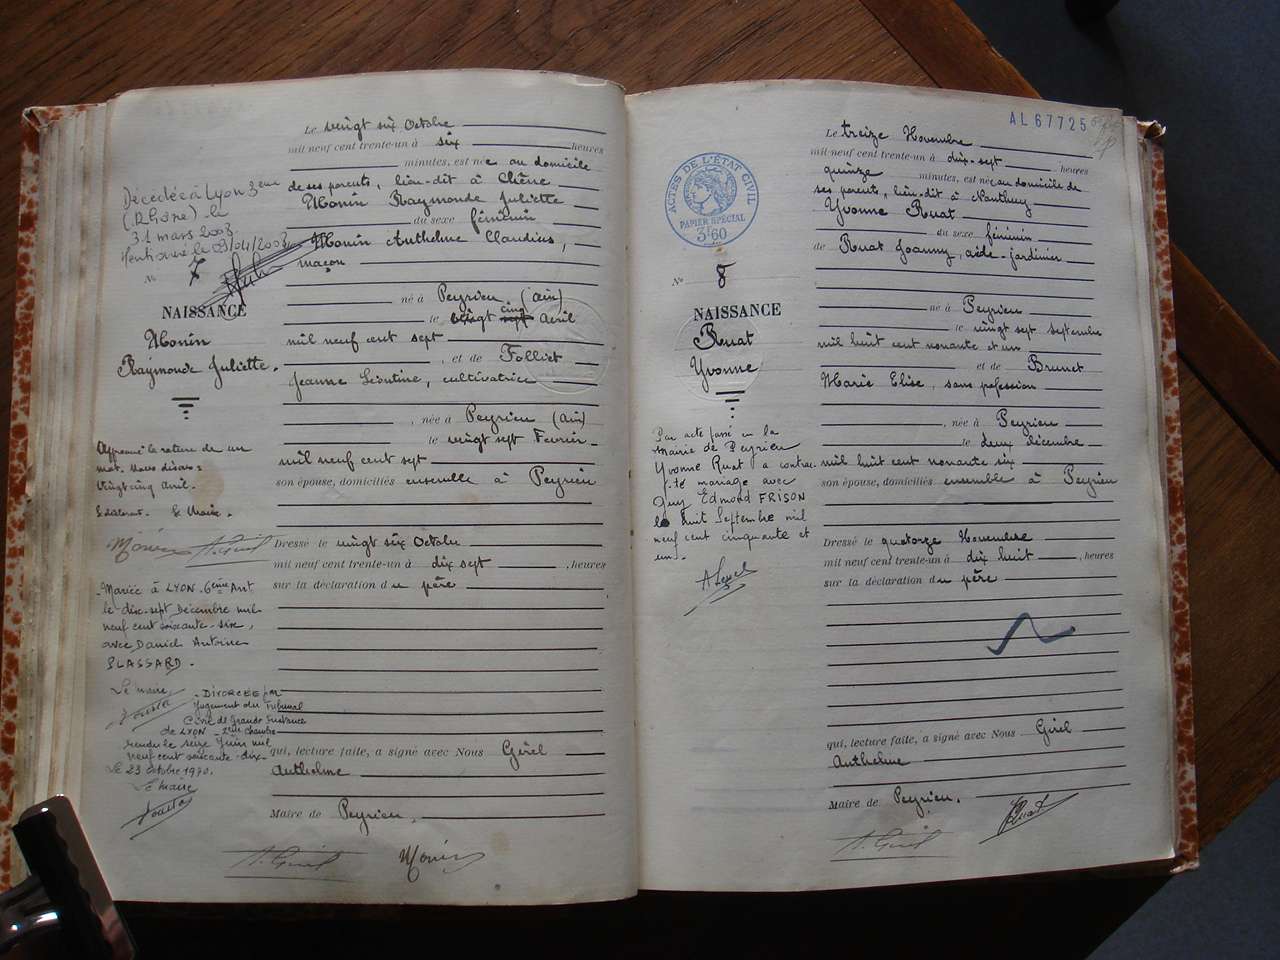 Le vingt six Octobre
mil neuf cent trente-un à six heures
minutes, est née au domicile
de ses parents, lieu-dit à Chêne
Monin Raymonde Juliette
du sexe féminin
Monin Anthelme Claudius,
maçon
né à Peyrieu (Ain)
le vingt cinq Avril
mil neuf cent sept
, et de Folliet
Jeanne Léontine, cultivatrice
, née à Peyrieu (Ain)
le vingt sept Fevrier
mil neuf cent sept
son épouse, domiciliés ensemble à Peyrieu
Dressé le vingt six Octobre
mil neuf cent trente-un à dix sept , heures
sur la déclaration du père
qui, lecture faite, a signé avec Nous Girel
Anthelme
Maire de Peyrieu.
A. Girel Monin
Décédée à Lyon 3eme
(Rhône) le
31 mars 2003
Mentionné le 09/04/2003
N° 7
NAISSANCE
Monin
Raymonde Juliette.
Approuvé la rature de un
mot. Nous disons :
Vingt cinq Avril.
Le déclarant. Le Maire.
Monin A. Girel
Mariée à LYON-6ème Arrt
le dix-sept Décembre mil
neuf cent soixante-six,
avec Daniel Antoine
PLASSARD.
Le maire,
- DIVORCÉE par
Jugement du Tribunal
Civil de Grande Instance
de LYON - 2ème chambre
rendu le seize Juin mil
neuf cent soixante-dix-
Le 23 octobre 1970.
Le maire
AL 67725
Le treize Novembre
mil neuf cent trente-un à dix-sept heures
quinze minutes, est née au domicile de
ses parents, lieu-dit à Nanthuy
Yvonne Ruat
du sexe féminin
de Ruat Joanny, aide-jardinier
né à Peyrieu
le vingt sept septembre
mil huit cent nonante et un
et de Brunet
Marie Elise, sans profession
, née à Peyrieu
le deux décembre
mil huit cent nonante six
son épouse, domiciliés ensemble à Peyrieu
Dressé le quatorze Novembre
mil neuf cent trente-un à dix huit , heures
sur la déclaration du père
qui, lecture faite, a signé avec Nous Girel
Anthelme
Maire de Peyrieu.
A. Girel Ruat
ACTES DE L'ÉTAT CIVIL
PAPIER SPÉCIAL
3F60
N° 8
NAISSANCE
Ruat
Yvonne
Par acte passé en la
mairie de Peyrieu
Yvonne Ruat a contrac
-té mariage avec
Guy Edmond FRISON
le huit Septembre mil
neuf cent cinquante et
un.